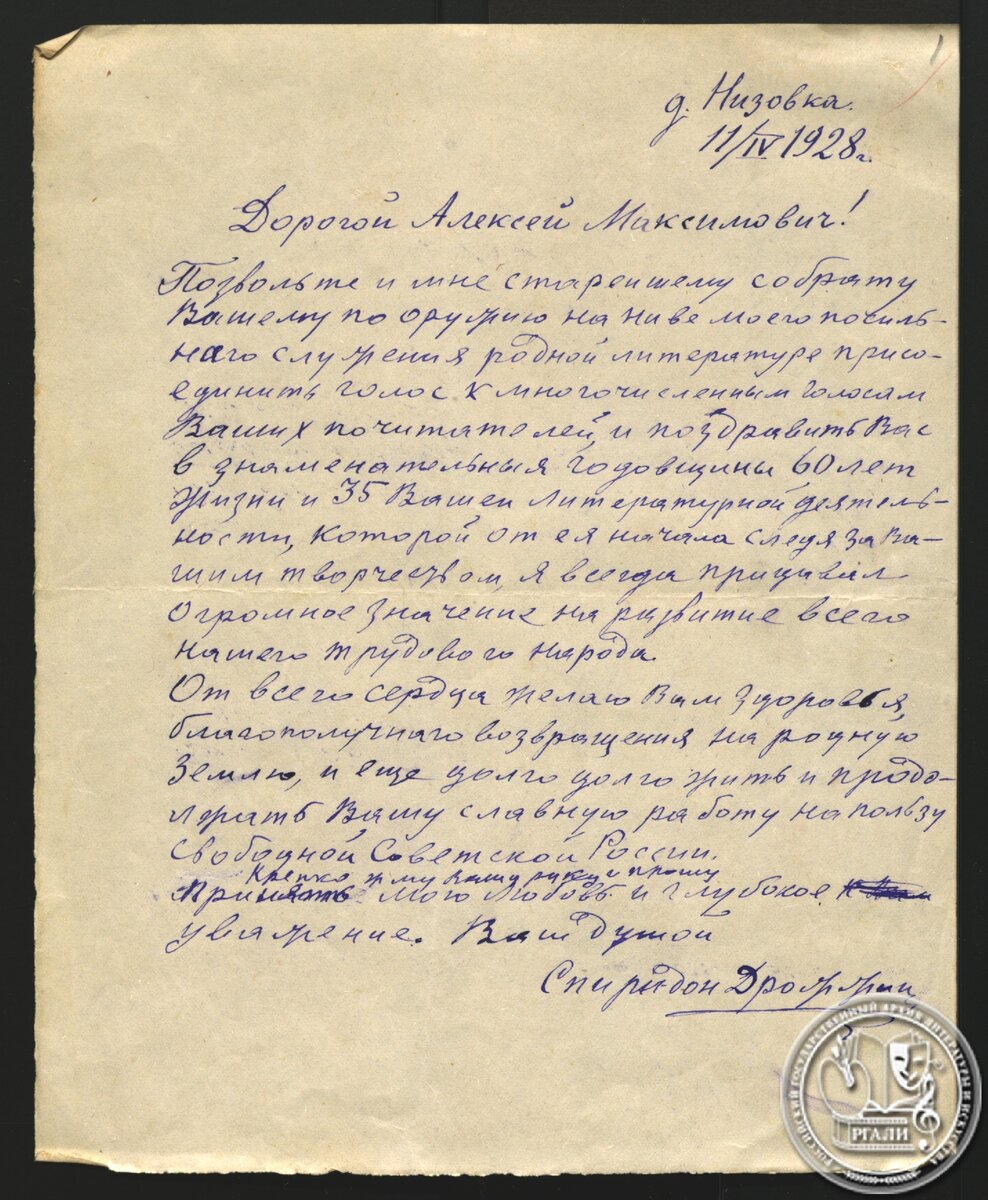 д. Низовка.
11/IV 1928 г.
Дорогой Алексей Максимович!
Позвольте и мне старейшему собрату
Вашему по оружию на ниве моего посиль-
наго служения родной литературе присо-
единить голос к многочисленным голосам
Ваших почитателей, и поздравить Вас
в знаменательныя годовщины 60 лет
жизни и 35 Вашей литературной деятель-
ности, которой от ея начала следя за Ва-
шим творчеством, я всегда придавал
огромное значение на развитие всего
нашего трудового народа.
От всего сердца желаю Вам здоровья,
благополучнаго возвращения на родную
землю, и еще долго долго жить и продо-
лжать Вашу славную работу на пользу
свободной Советской России.
Крепко жму Вашу руку и прошу
принять мою любовь и глубокое
уважение. Ваш душой
Спиридон Дрожжин
РОССИЙСКИЙ ГОСУДАРСТВЕННЫЙ АРХИВ ЛИТЕРАТУРЫ И ИСКУССТВА
РГАЛИ